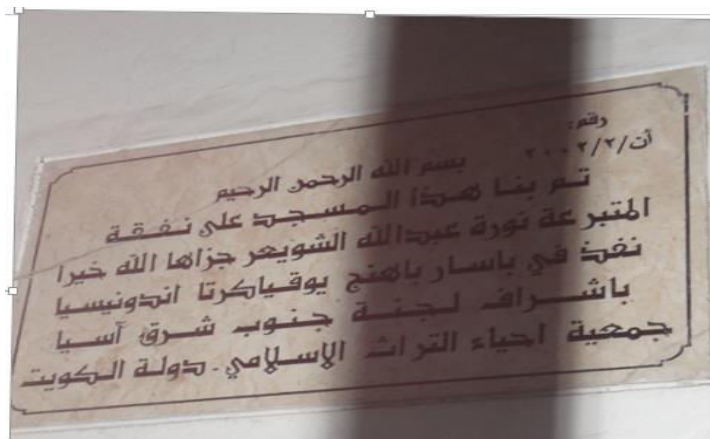 رقم:
آن/٢/٢٠٠٢
بسم الله الرحمن الرحيم
تم بنا هذا المسجد على نفقة
المتبرعة نورة عبدالله الشويعر جزاها الله خيرا
نفذ في باسار باهنج يوقياكرتا اندونيسيا
باشراف لجنة جنوب شرق آسيا
جمعية احياء التراث الاسلامي - دولة الكويت